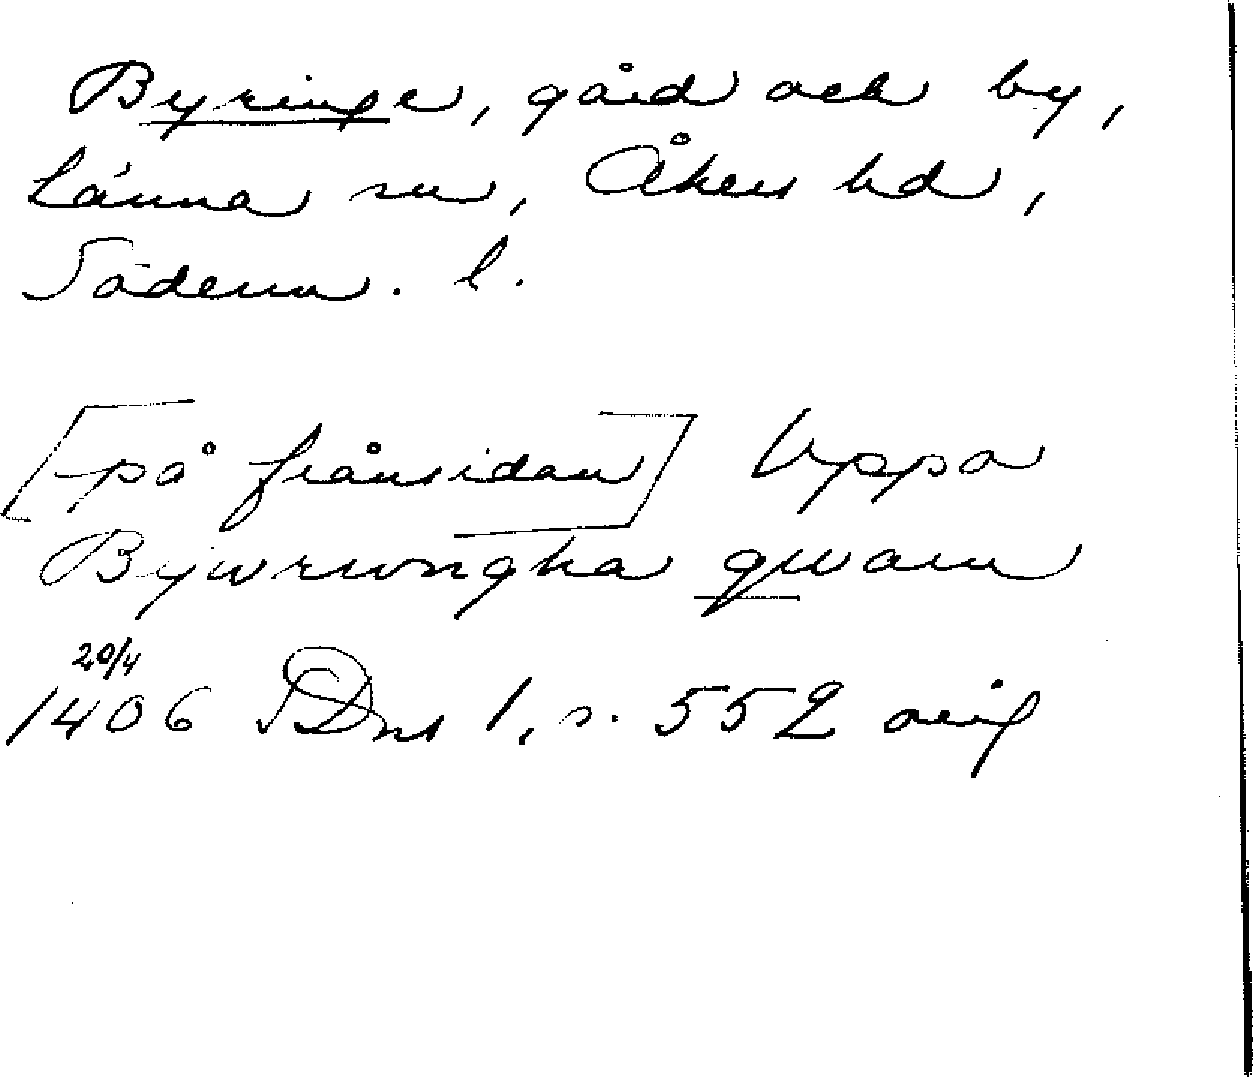 Byringe, gård och by,
Länna sn, Åkers hd,
Söderm. l.
[på frånsidan] Uppa
Bywrwngha qwarn
20/4
1406 SDns 1, s. 552 orig